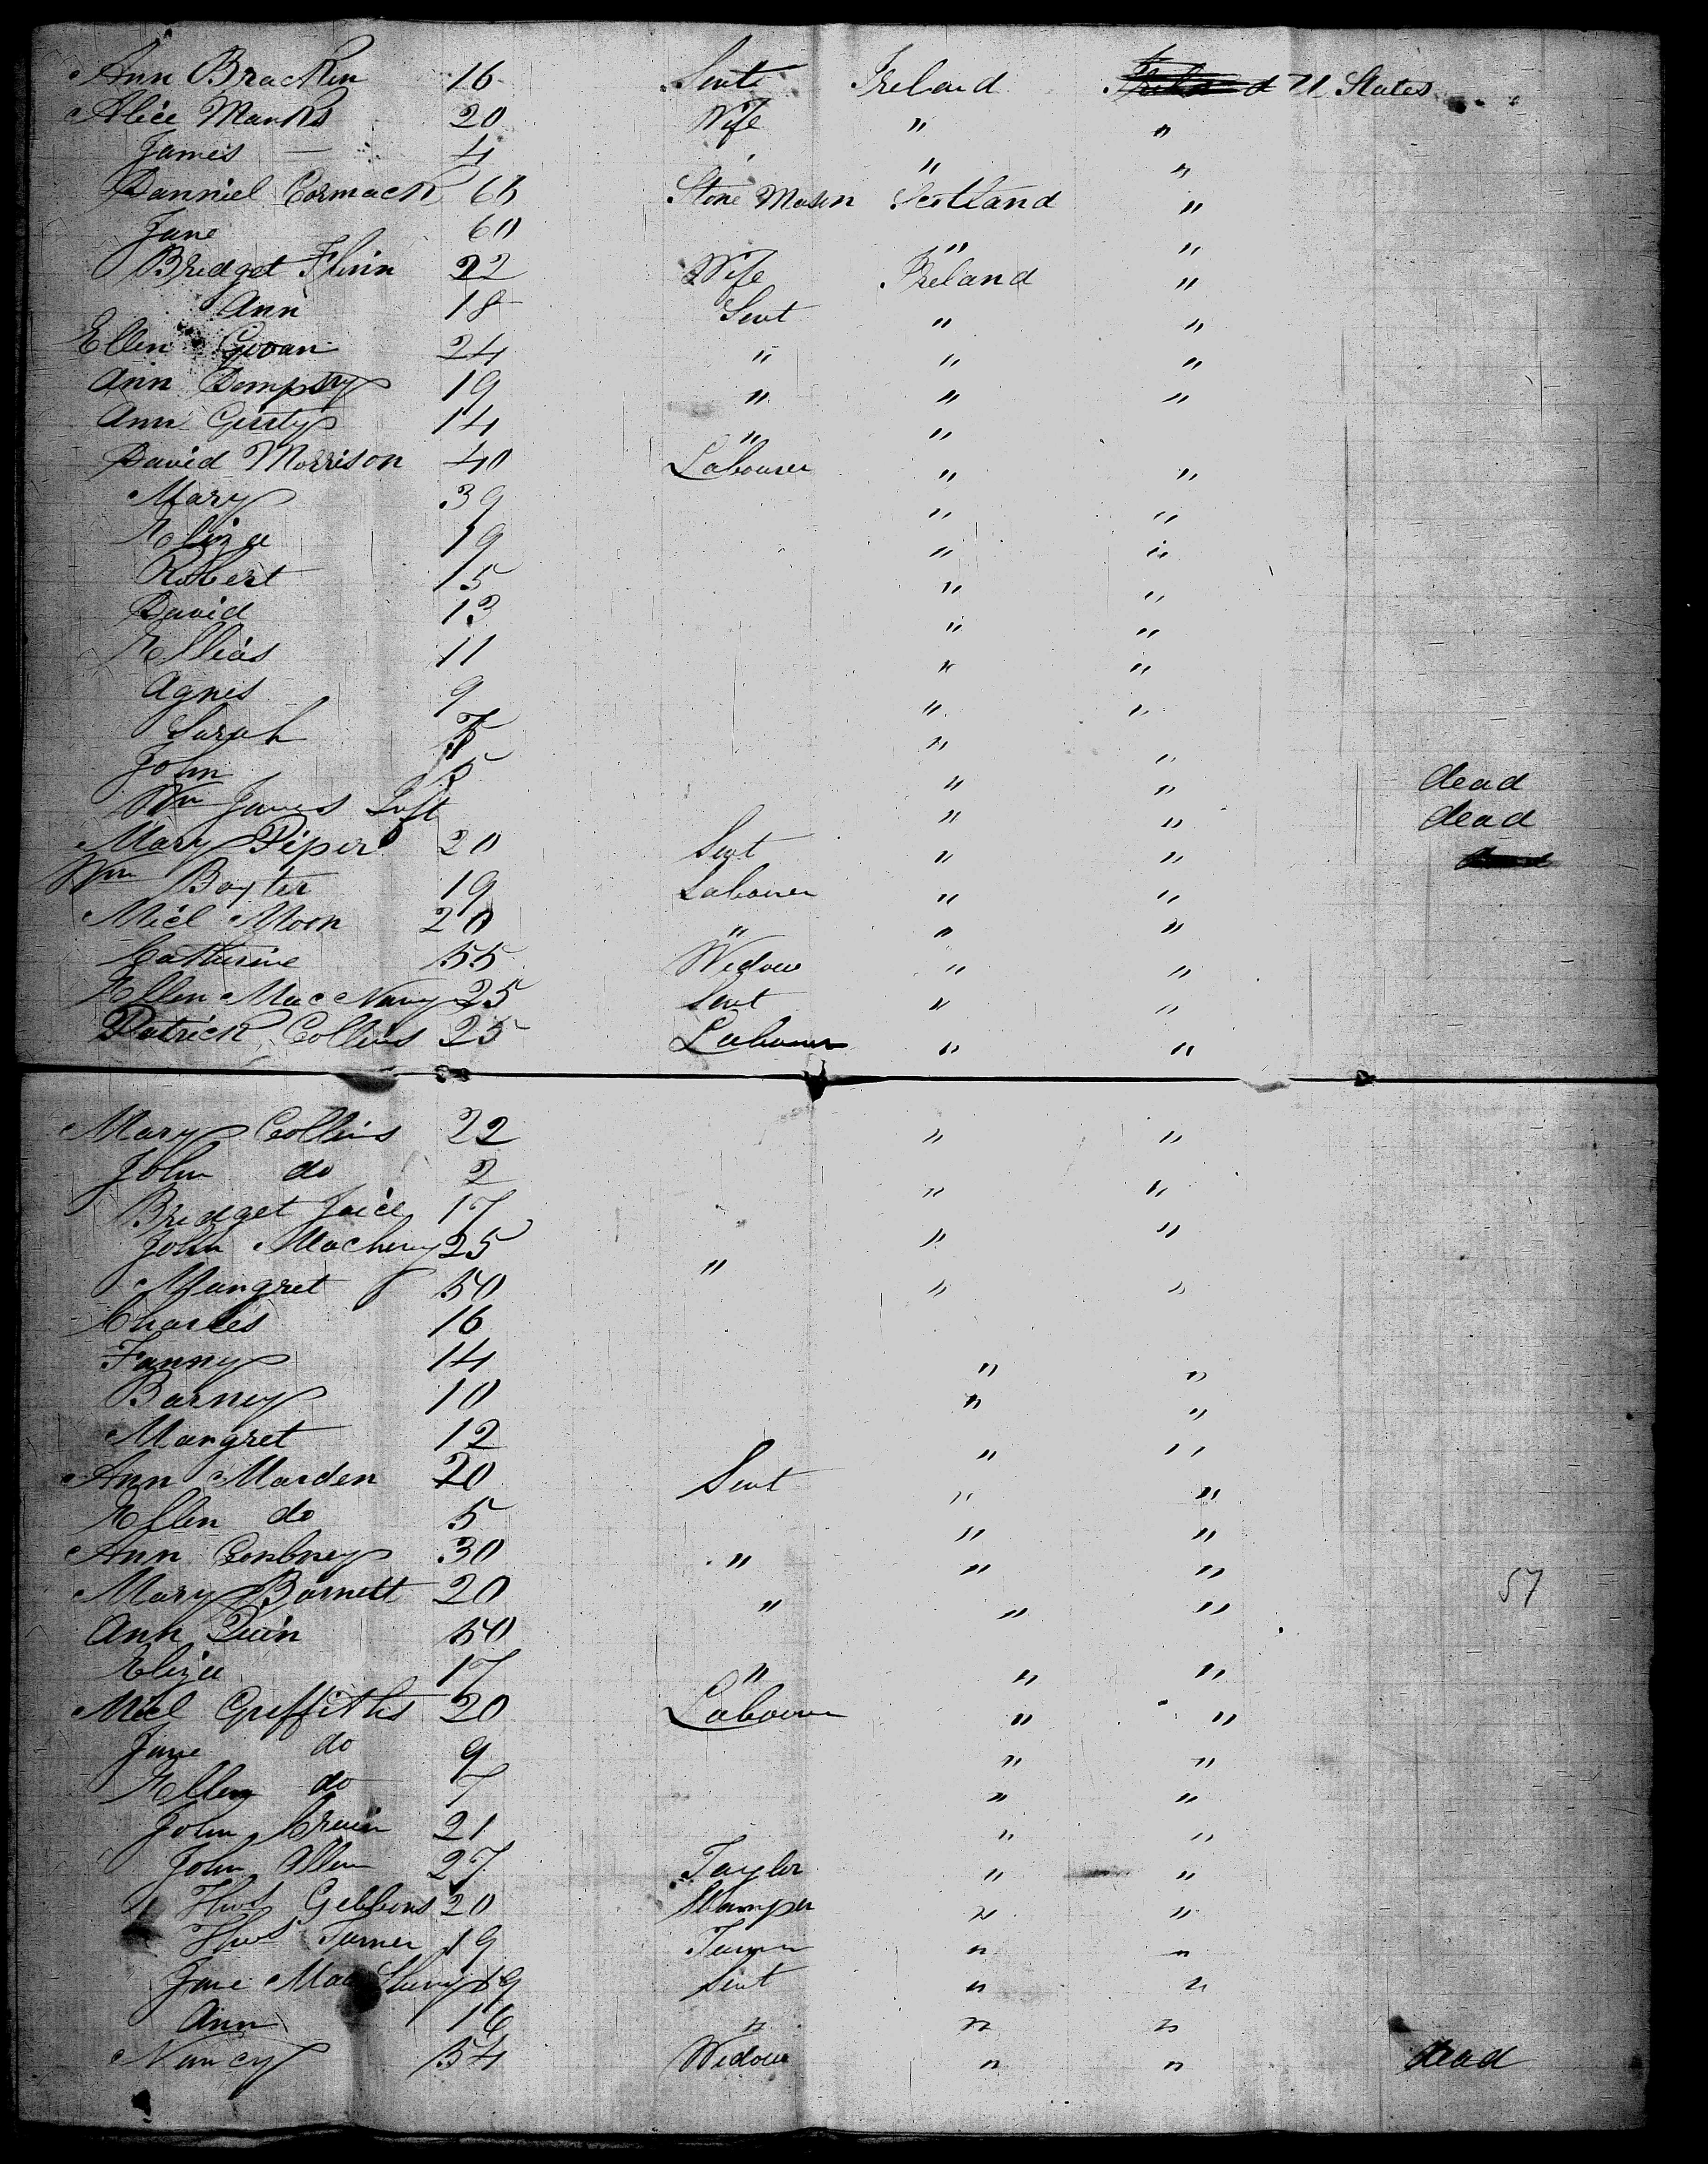 Ann Bracken 16 Sevt Ireland U States
Alice Marks 20 Wife " "
James — 4 " "
Danniel Cormack 65 Stone Mason Scotland "
Jane 60 " "
Bridget Flinn 22 Wife Ireland "
Ann 18 Sevt " "
Ellen Govan 24 " " "
Ann Dempsy 19 " " "
Ann Gerty 14 " "
David Morrison 40 Labourer " "
Mary 39 " "
Eliza 19 " "
Robert 15 " "
David 13 " "
Ellias 11 " "
Agnes 9 " "
Sarah 7 "
John 5 " " dead
Wm James Inft " " dead
Mary Piper 20 Sevt " "
Wm Baxter 19 Labourer " "
Micl Moon 20 " " "
Catherine 55 Widow " "
Ellen MacNany 25 Sevt " "
Patrick Collins 25 Labourer " "
Mary Collins 22 " "
John do 2 " "
Bridget Joice 17 "
John Machery 25 " "
Mangret 50 " "
Charles 16
Fanny 14 " "
Barney 10 " "
Mangret 12 " "
Ann Marden 20 Sevt " "
Ellen do 5 " "
Ann 30 " " "
Mary Barnett 20 " " " 57
Ann Quin 50
Eliza 17 " " "
Micl Griffiths 20 Labourer " "
Jane do 9 " "
Ellen do 7 " "
John 21 " "
John Allen 27 Taylor " "
Thos Gebbins 20 Stamper " "
Thos Turner 19 Turner " "
Jane 19 Sevt " "
Ann 16 " " "
Nancy 54 Widow " " dead